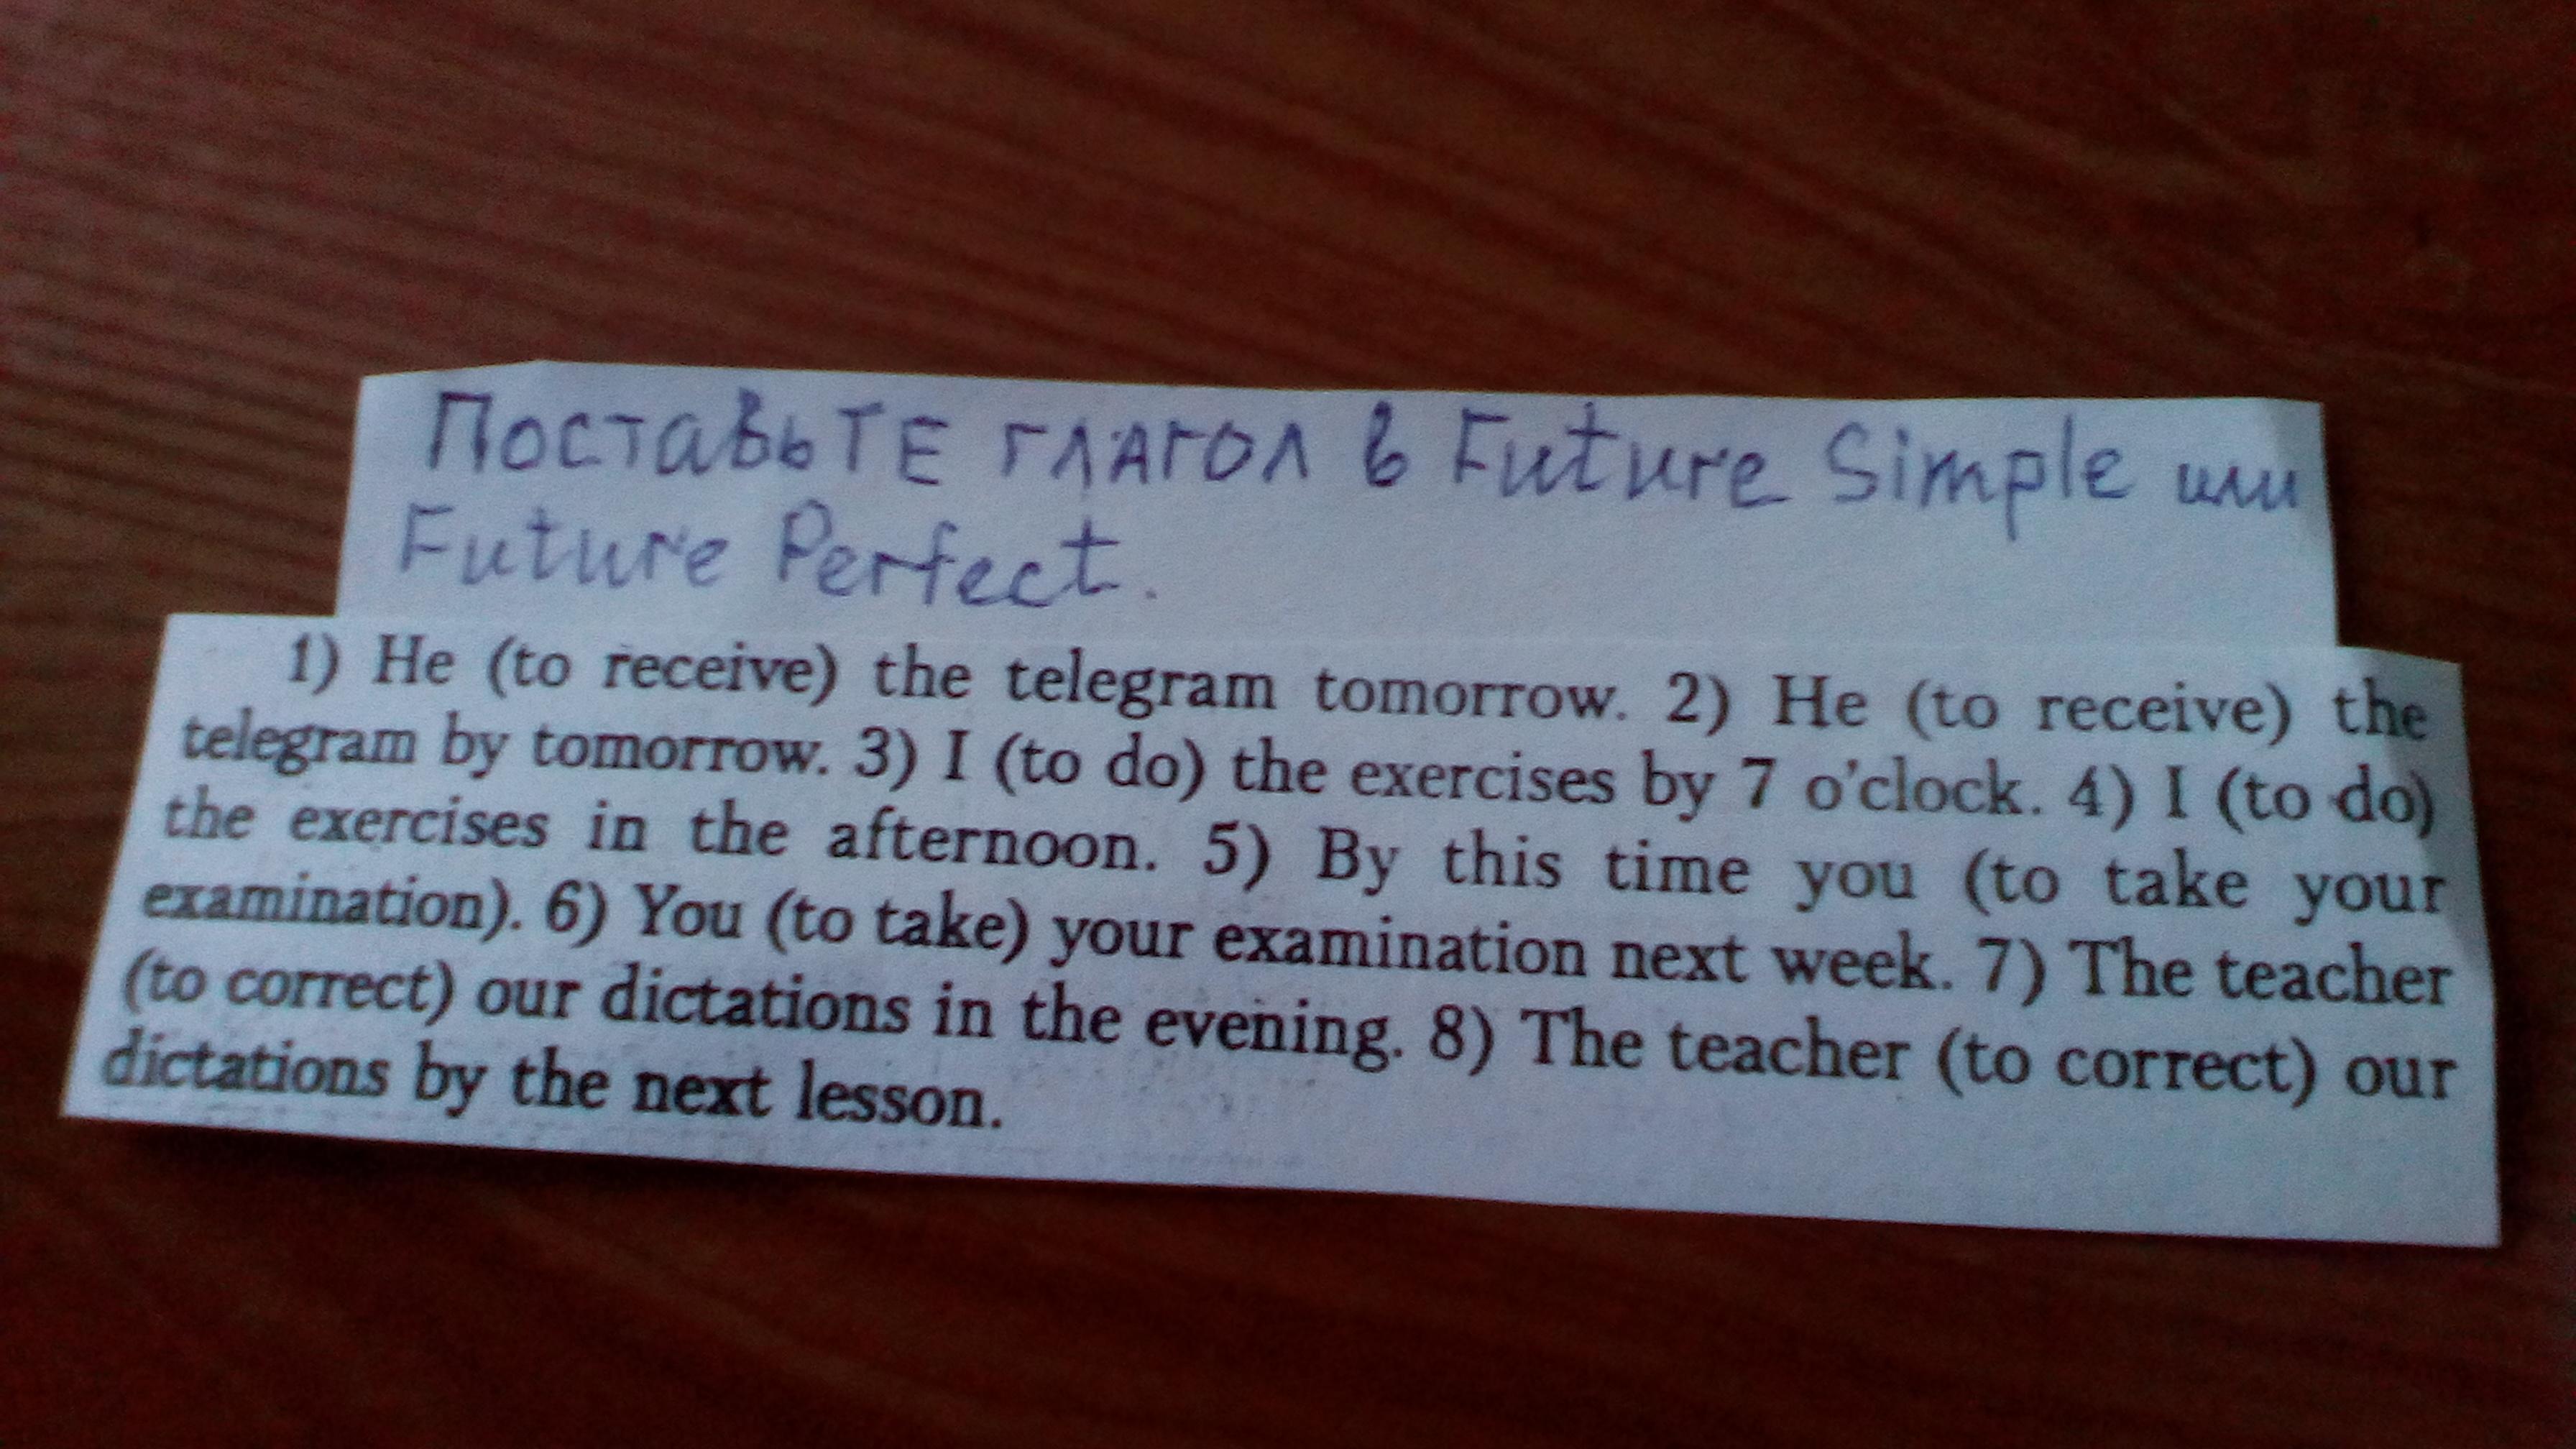 Поставьте глагол в Future Simple или
Future Perfect.
1) He (to receive) the telegram tomorrow. 2) He (to receive) the
telegram by tomorrow. 3) I (to do) the exercises by 7 o'clock. 4) I (to do)
the exercises in the afternoon. 5) By this time you (to take your
examination). 6) You (to take) your examination next week. 7) The teacher
(to correct) our dictations in the evening. 8) The teacher (to correct) our
dictations by the next lesson.